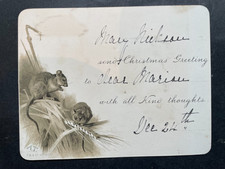 Mary Nickson
sends Christmas Greeting
to dear Marian
with all Kind thoughts
Dec 24th